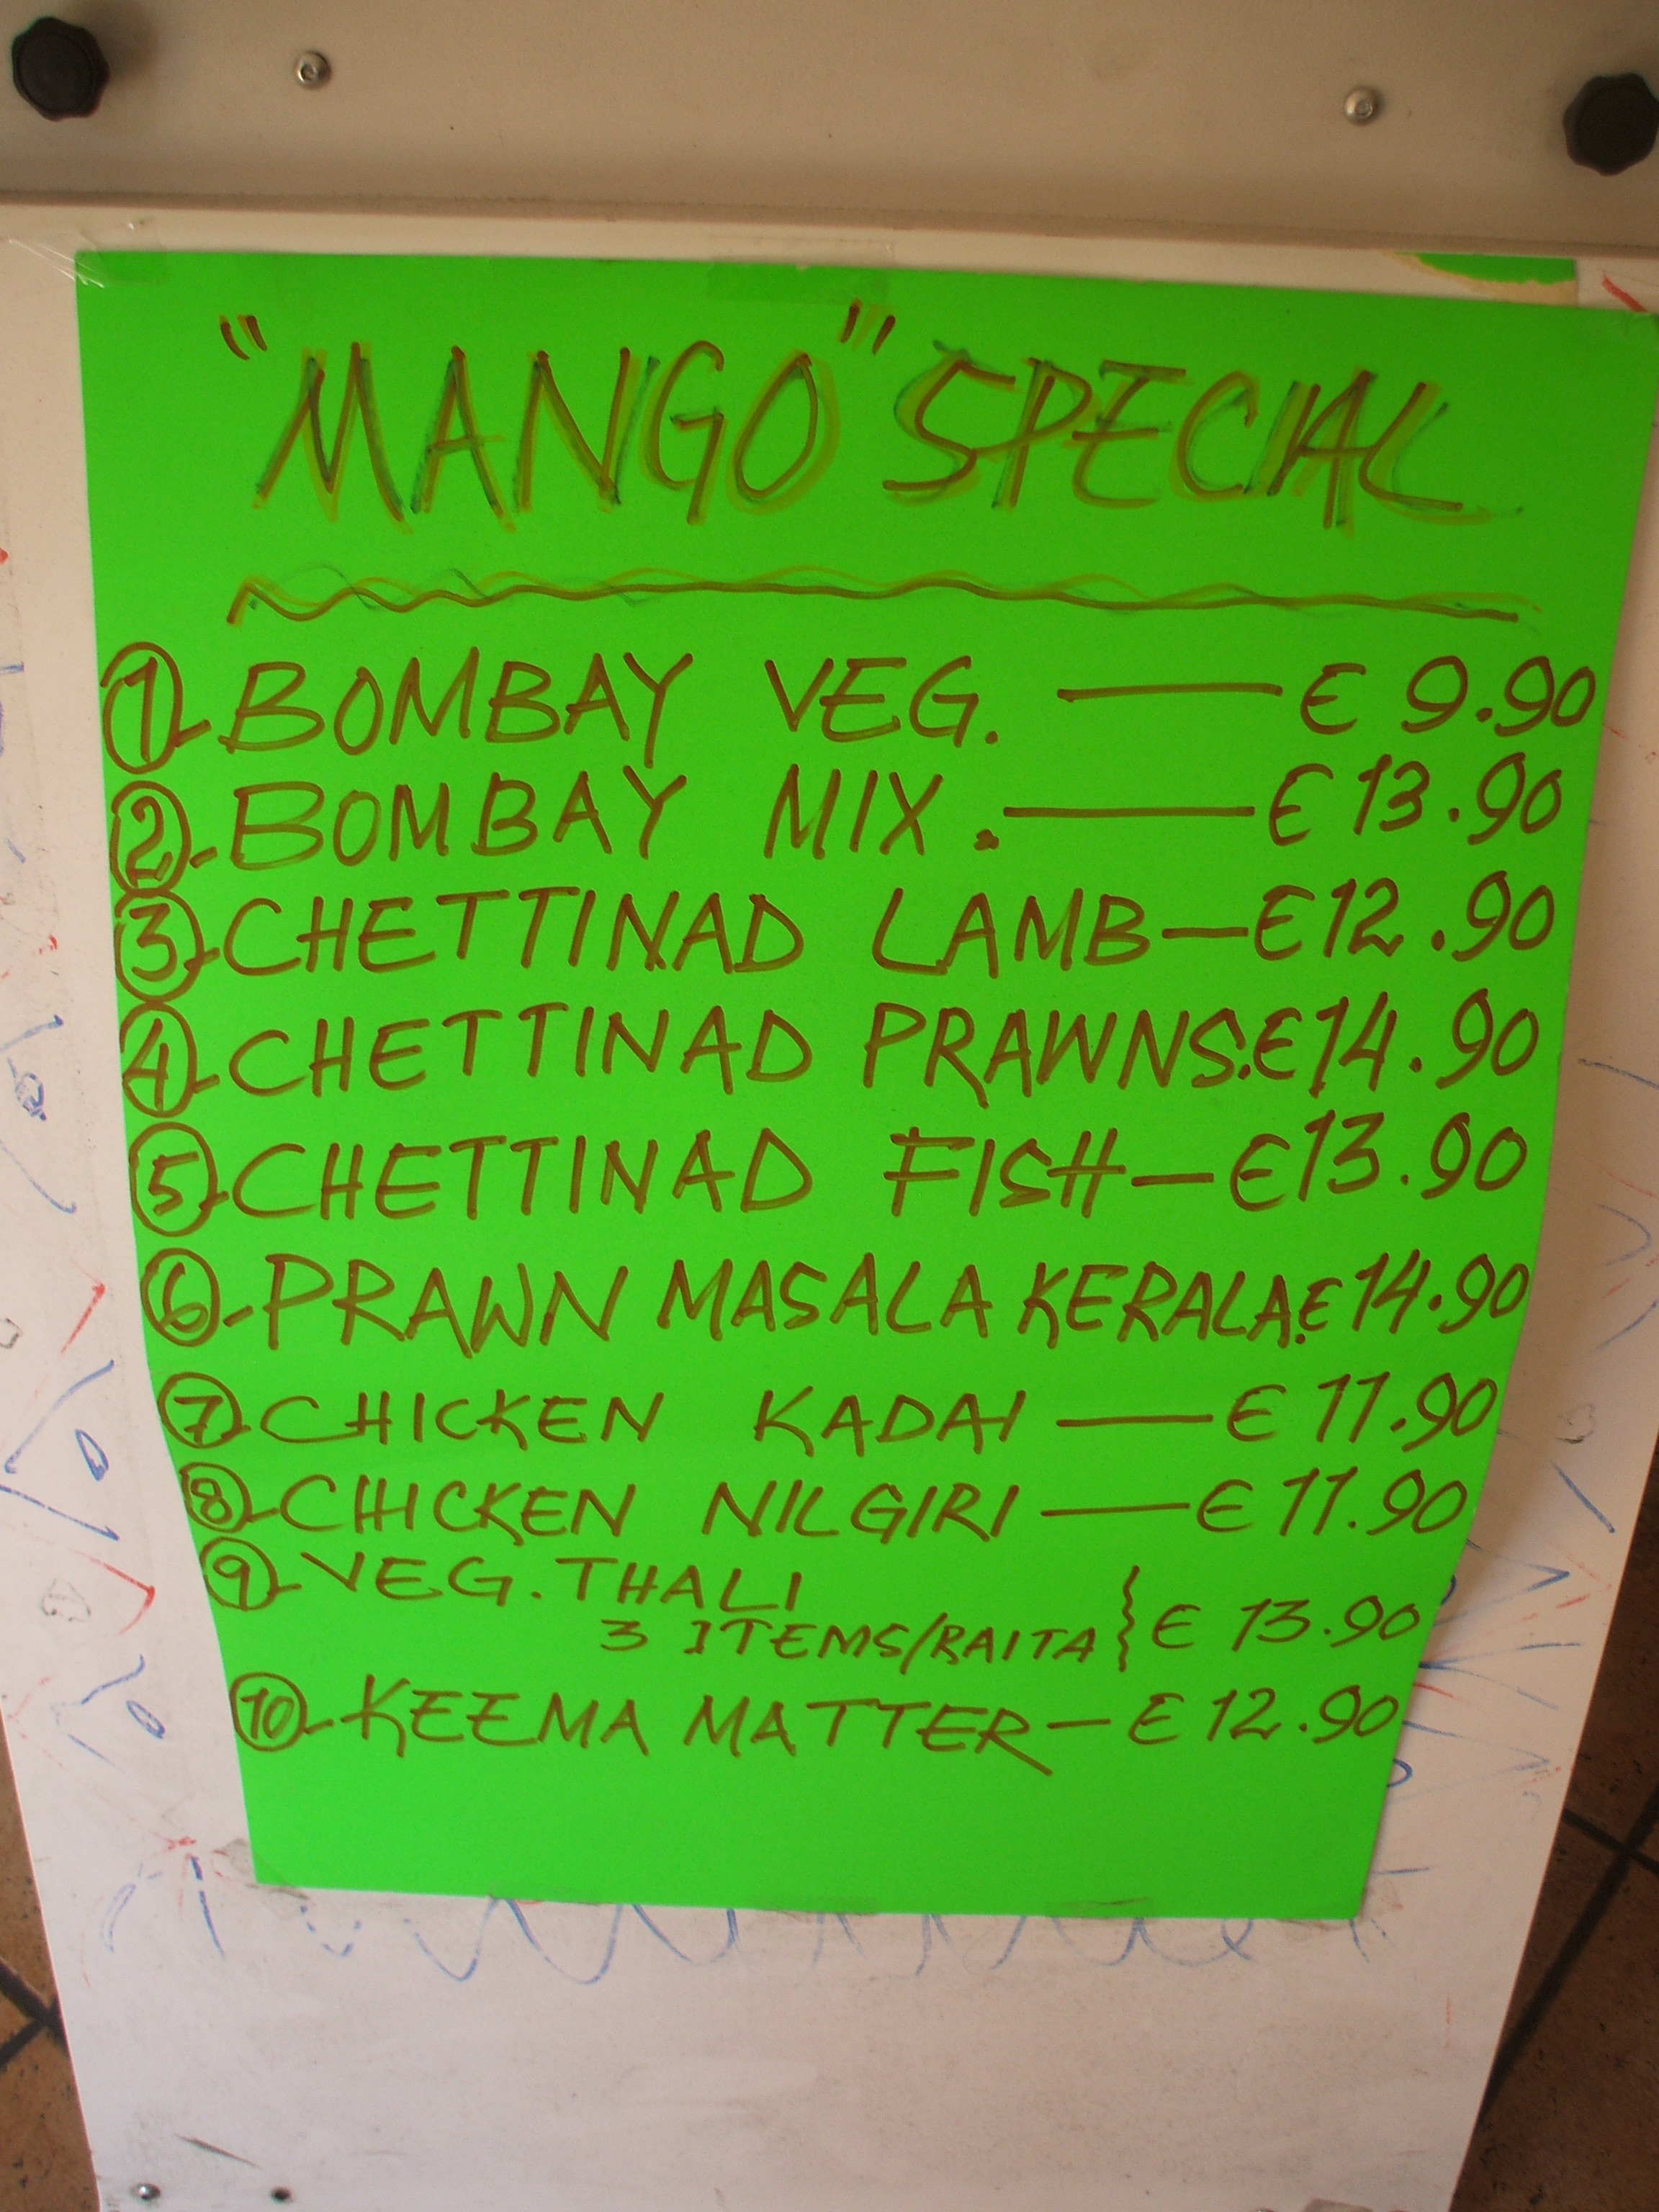 "MANGO" SPECIAL
1- BOMBAY VEG. — € 9.90
2- BOMBAY MIX. — € 13.90
3- CHETTINAD LAMB — € 12.90
4- CHETTINAD PRAWNS. € 14.90
5- CHETTINAD FISH — € 13.90
6- PRAWN MASALA KERALA. € 14.90
7- CHICKEN KADAI — € 11.90
8- CHICKEN NILGIRI — € 11.90
9- VEG. THALI
3 ITEMS/RAITA } € 13.90
10- KEEMA MATTER — € 12.90